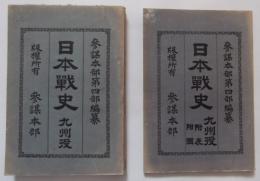 參謀本部第四部編纂
日本戰史 九州役
版權所有 參謀本部
參謀本部第四部編纂
日本戰史 九州役 附表 附圖
版權所有 參謀本部